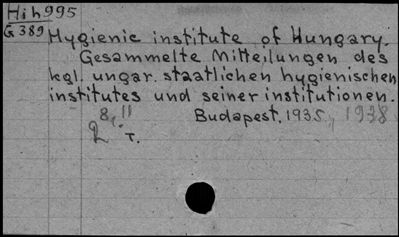 Hih995
G389
Hygienic institute of Hungary.
Gesammelte Mitteilungen des
kgl. ungar. staatlichen hygienischen
institutes und seiner institutionen.
8, 11 Budapest, 1935, 1938
2 T.